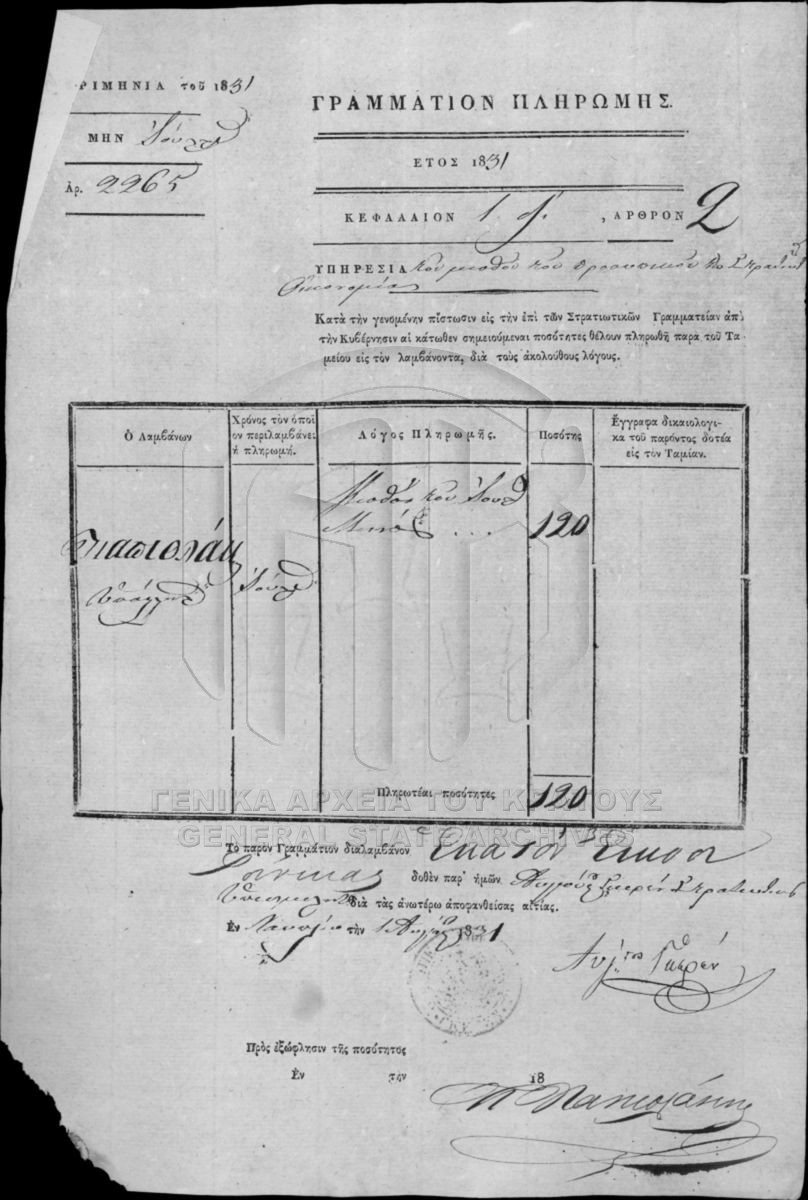 ΡΙΜΗΝΙΑ τοῦ 1831
ΜΗΝ Ἰούλ
Ἀρ. 2265
ΓΡΑΜΜΑΤΙΟΝ ΠΛΗΡΩΜΗΣ.
ΕΤΟΣ 1831
ΚΕΦΑΛΑΙΟΝ 1 , ΑΡΘΡΟΝ 2
ΥΠΗΡΕΣΙΑ τοῦ μισθοῦ τοῦ προσωπικοῦ
Οἰκονομίας
Κατὰ τὴν γενομένην πίστωσιν εἰς τὴν ἐπὶ τῶν Στρατιωτικῶν Γραμματείαν ἀπὸ
τὴν Κυβέρνησιν αἱ κάτωθεν σημειούμεναι ποσότητες θέλουν πληρωθῆ παρα τοῦ Τα-
μείου εἰς τὸν λαμβάνοντα, διὰ τοὺς ἀκολούθους λόγους.
Ὁ Λαμβάνων
Χρόνος τὸν ὁποῖ
ον περιλαμβάνει
ἡ πληρωμή.
Λόγος Πληρωμῆς.
Ποσότης
Ἔγγραφα δικαιολογι-
κα τοῦ παρόντος δοτέα
εἰς τὸν Ταμίαν.
Μισθὸς τοῦ Ἰουλ
Μηνὸς ... 120
Ἰούλ
Πληρωτέαι ποσότητες 120
ΓΕΝΙΚΑ ΑΡΧΕΙΑ ΤΟΥ ΚΡΑΤΟΥΣ
GENERAL STATE ARCHIVES
Τὸ παρὸν Γραμμάτιον διαλαμβάνον Ἑκατὸν εἴκοσι
Φοίνικας δοθὲν παρ' ἡμῶν
διὰ τὰς ἀνωτέρω ἀποφανθείσας αἰτίας.
Ἐν Ναυπλίῳ τὴν 1831
Πρὸς ἐξώφλησιν τῆς ποσότητος
Ἐν τὴν 18